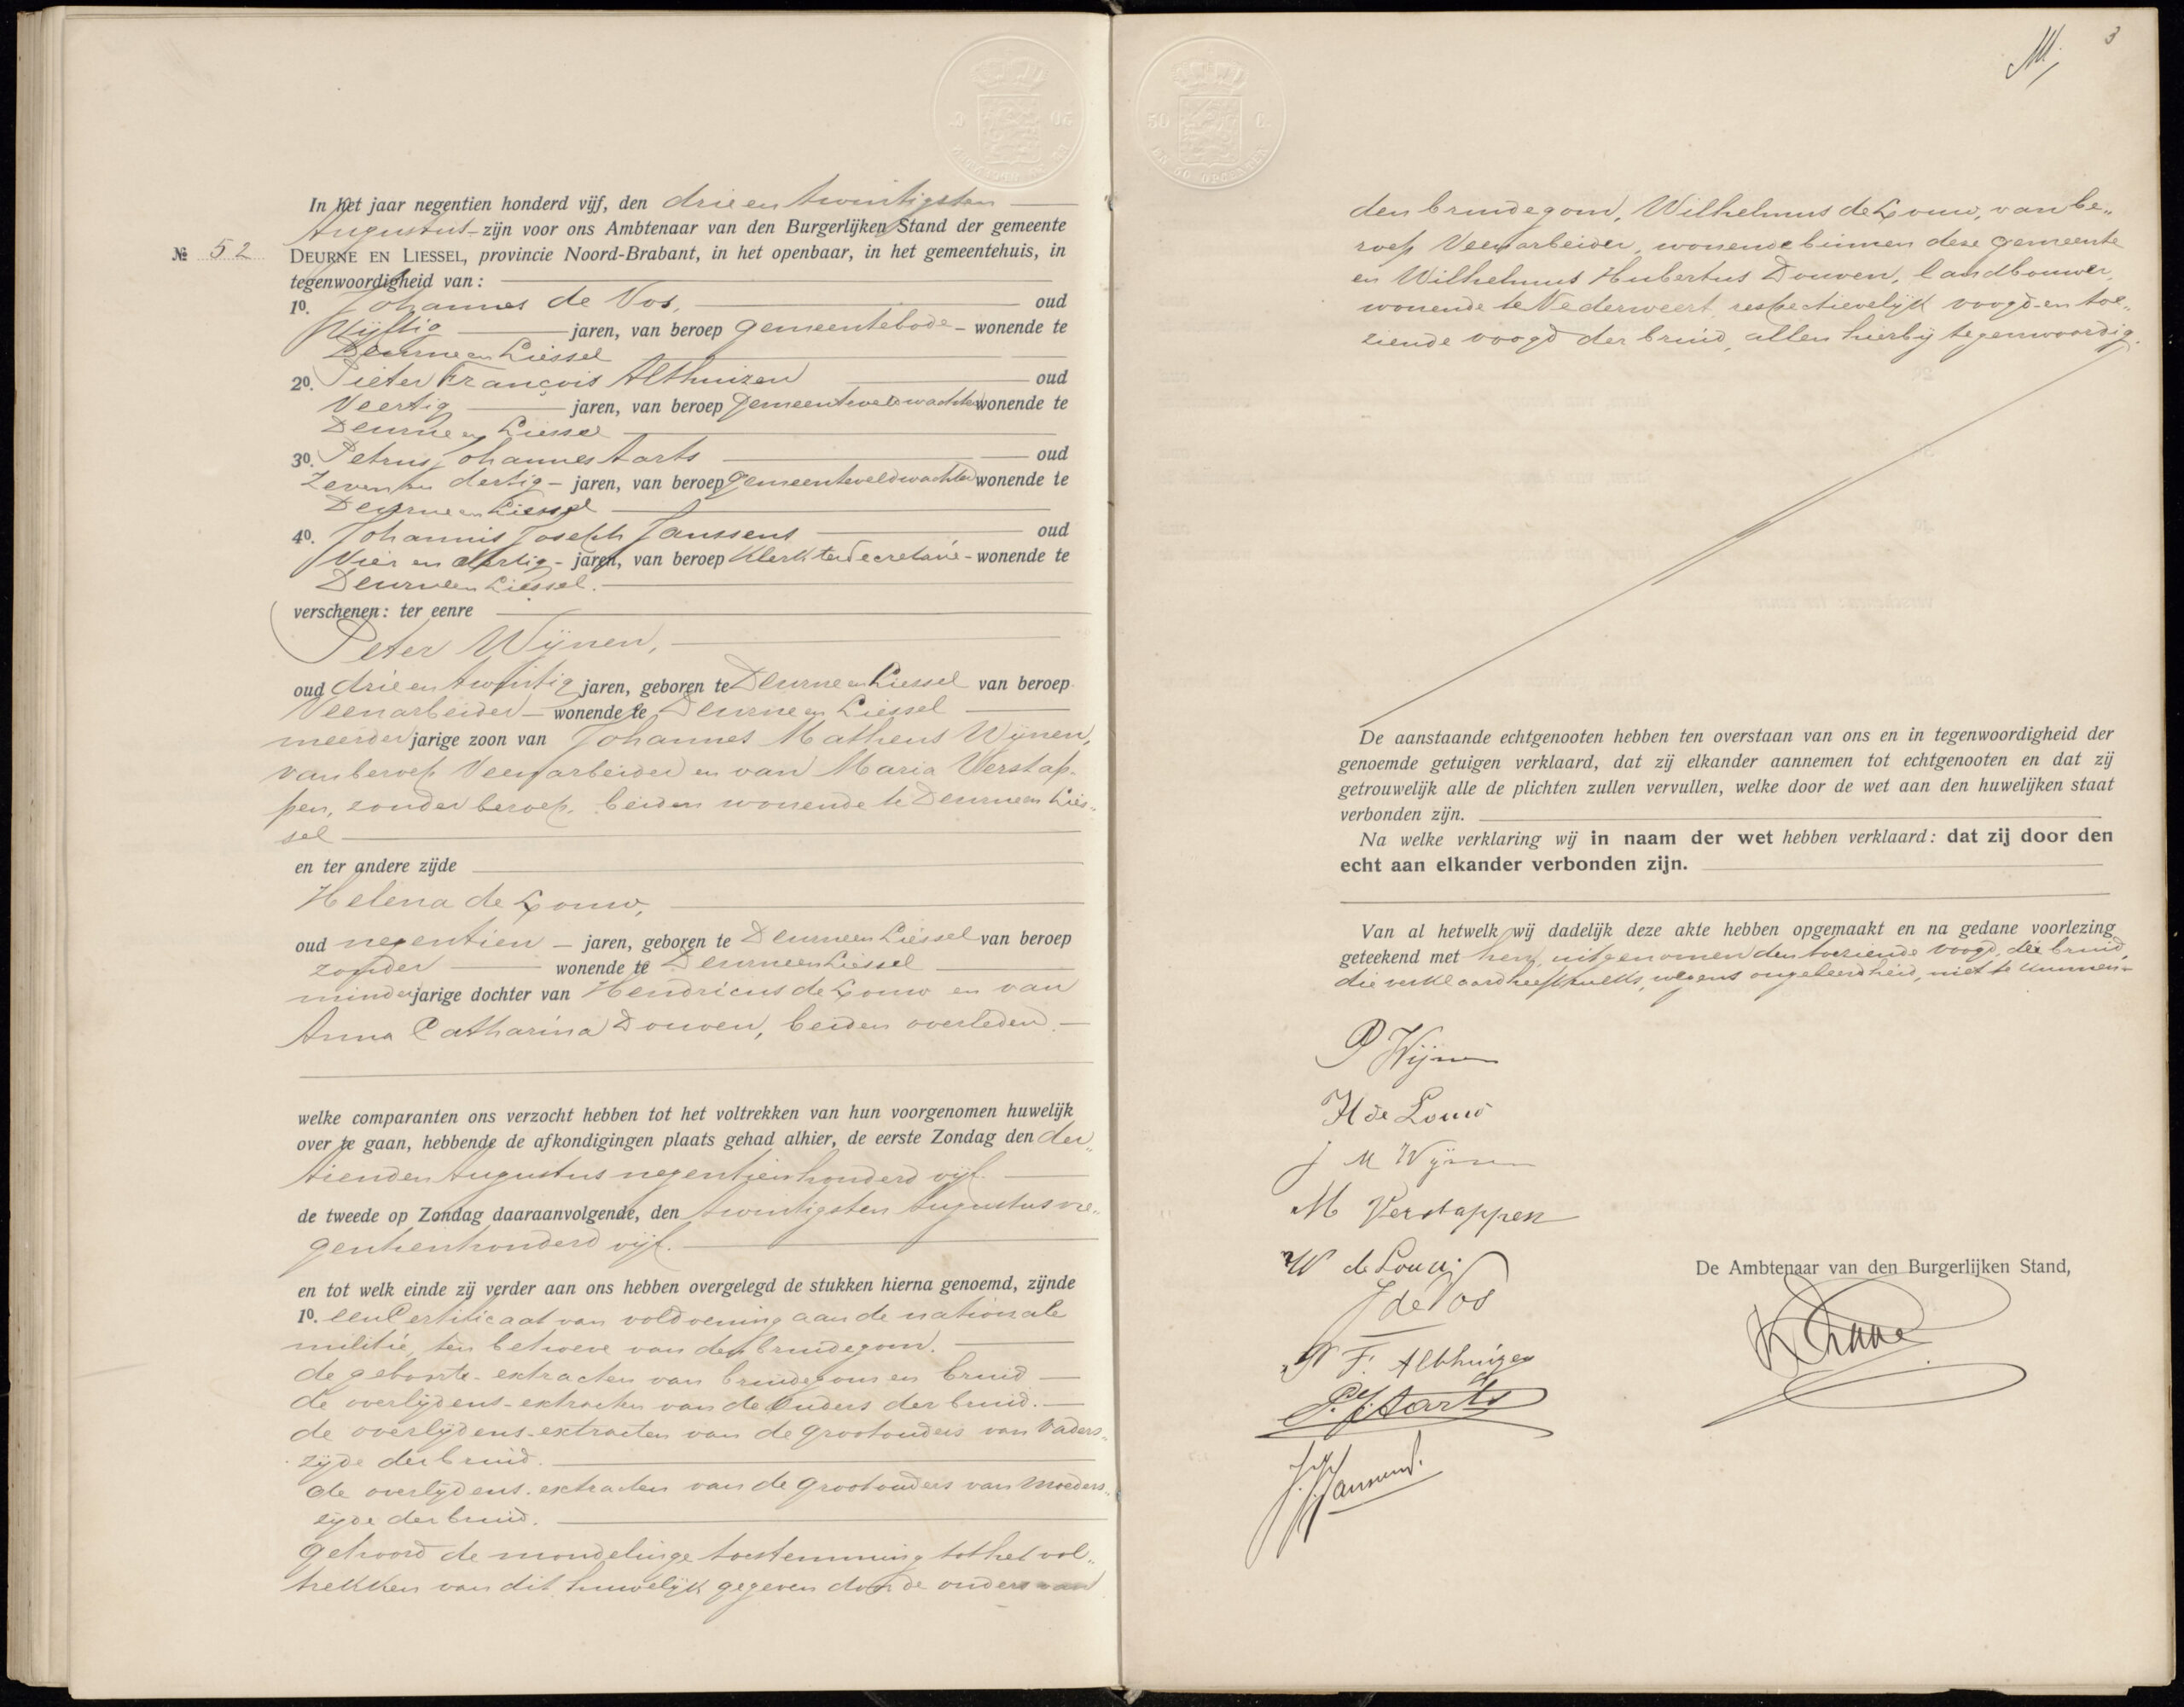 In het jaar negentien honderd vijf, den drie en twintigsten
Augustus zijn voor ons Ambtenaar van den Burgerlijken Stand der gemeente
№ 52 DEURNE EN LIESSEL, provincie Noord-Brabant, in het openbaar, in het gemeentehuis, in
tegenwoordigheid van:
1º. Johannes de Vos, oud
Vijftig jaren, van beroep gemeentebode - wonende te
Deurne en Liessel
2º. Pieter François Althuizen oud
Veertig jaren, van beroep gemeenteveldwachter wonende te
Deurne en Liessel
3º. Petrus Johannes Aarts oud
Zeven en dertig - jaren, van beroep gemeenteveldwachter wonende te
Deurne en Liessel
4º. Johannis Joseph Janssens oud
Vier en dertig - jaren, van beroep Klerk ter Secretarie - wonende te
Deurne en Liessel.
verschenen: ter eenre
Peter Wijnen,
oud drie en twintig jaren, geboren te Deurne en Liessel van beroep
Veenarbeider - wonende te Deurne en Liessel
meerderjarige zoon van Johannes Matheus Wijnen,
van beroep Veenarbeider en van Maria Verstap-
pen, zonder beroep, beiden wonende te Deurne en Lies„
sel
en ter andere zijde
Helena de Louw,
oud negentien - jaren, geboren te Deurne en Liessel van beroep
zonder wonende te Deurne en Liessel
minderjarige dochter van Hendricus de Louw en van
Anna Catharina Douven, beiden overleden.
welke comparanten ons verzocht hebben tot het voltrekken van hun voorgenomen huwelijk
over te gaan, hebbende de afkondigingen plaats gehad alhier, de eerste Zondag den der„
tienden Augustus negentienhonderd vijf.
de tweede op Zondag daaraanvolgende, den twintigsten Augustus ne„
gentienhonderd vijf.
en tot welk einde zij verder aan ons hebben overgelegd de stukken hierna genoemd, zijnde
1º. een Certificaat van voldoening aan de nationale
militie, ten behoeve van den bruidegom.
de geboorte-extracten van bruidegom en bruid
de overlijdens-extracten van de Ouders der bruid.
de overlijdens-extracten van de grootouders van Vaders„
zijde der bruid.
de overlijdens-extracten van de grootouders van moeders„
zijde der bruid.
Gehoord de mondelinge toestemming tot het vol„
trekken van dit huwelijk gegeven door de ouders van
3
den bruidegom, Wilhelmus de Louw, van be„
roep Veenarbeider, wonende binnen deze gemeente
en Wilhelmus Hubertus Douven, landbouwer,
wonende te Nederweert, respectievelijk voogd en toe„
ziende voogd der bruid, allen hierbij tegenwoordig.
De aanstaande echtgenooten hebben ten overstaan van ons en in tegenwoordigheid der
genoemde getuigen verklaard, dat zij elkander aannemen tot echtgenooten en dat zij
getrouwelijk alle de plichten zullen vervullen, welke door de wet aan den huwelijken staat
verbonden zijn.
Na welke verklaring wij in naam der wet hebben verklaard: dat zij door den
echt aan elkander verbonden zijn.
Van al hetwelk wij dadelijk deze akte hebben opgemaakt en na gedane voorlezing
geteekend met hen, uitgenomen den toeziende voogd der bruid,
die verklaard heeft zulks, wegens ongeleerdheid, niet te kunnen.
P Wijnen
H de Louw
J M Wijnen
M Verstappen
W de Louw
J de Vos
De Ambtenaar van den Burgerlijken Stand,
P F. Althuizen
P. J. Aarts
J. J. Janssens.